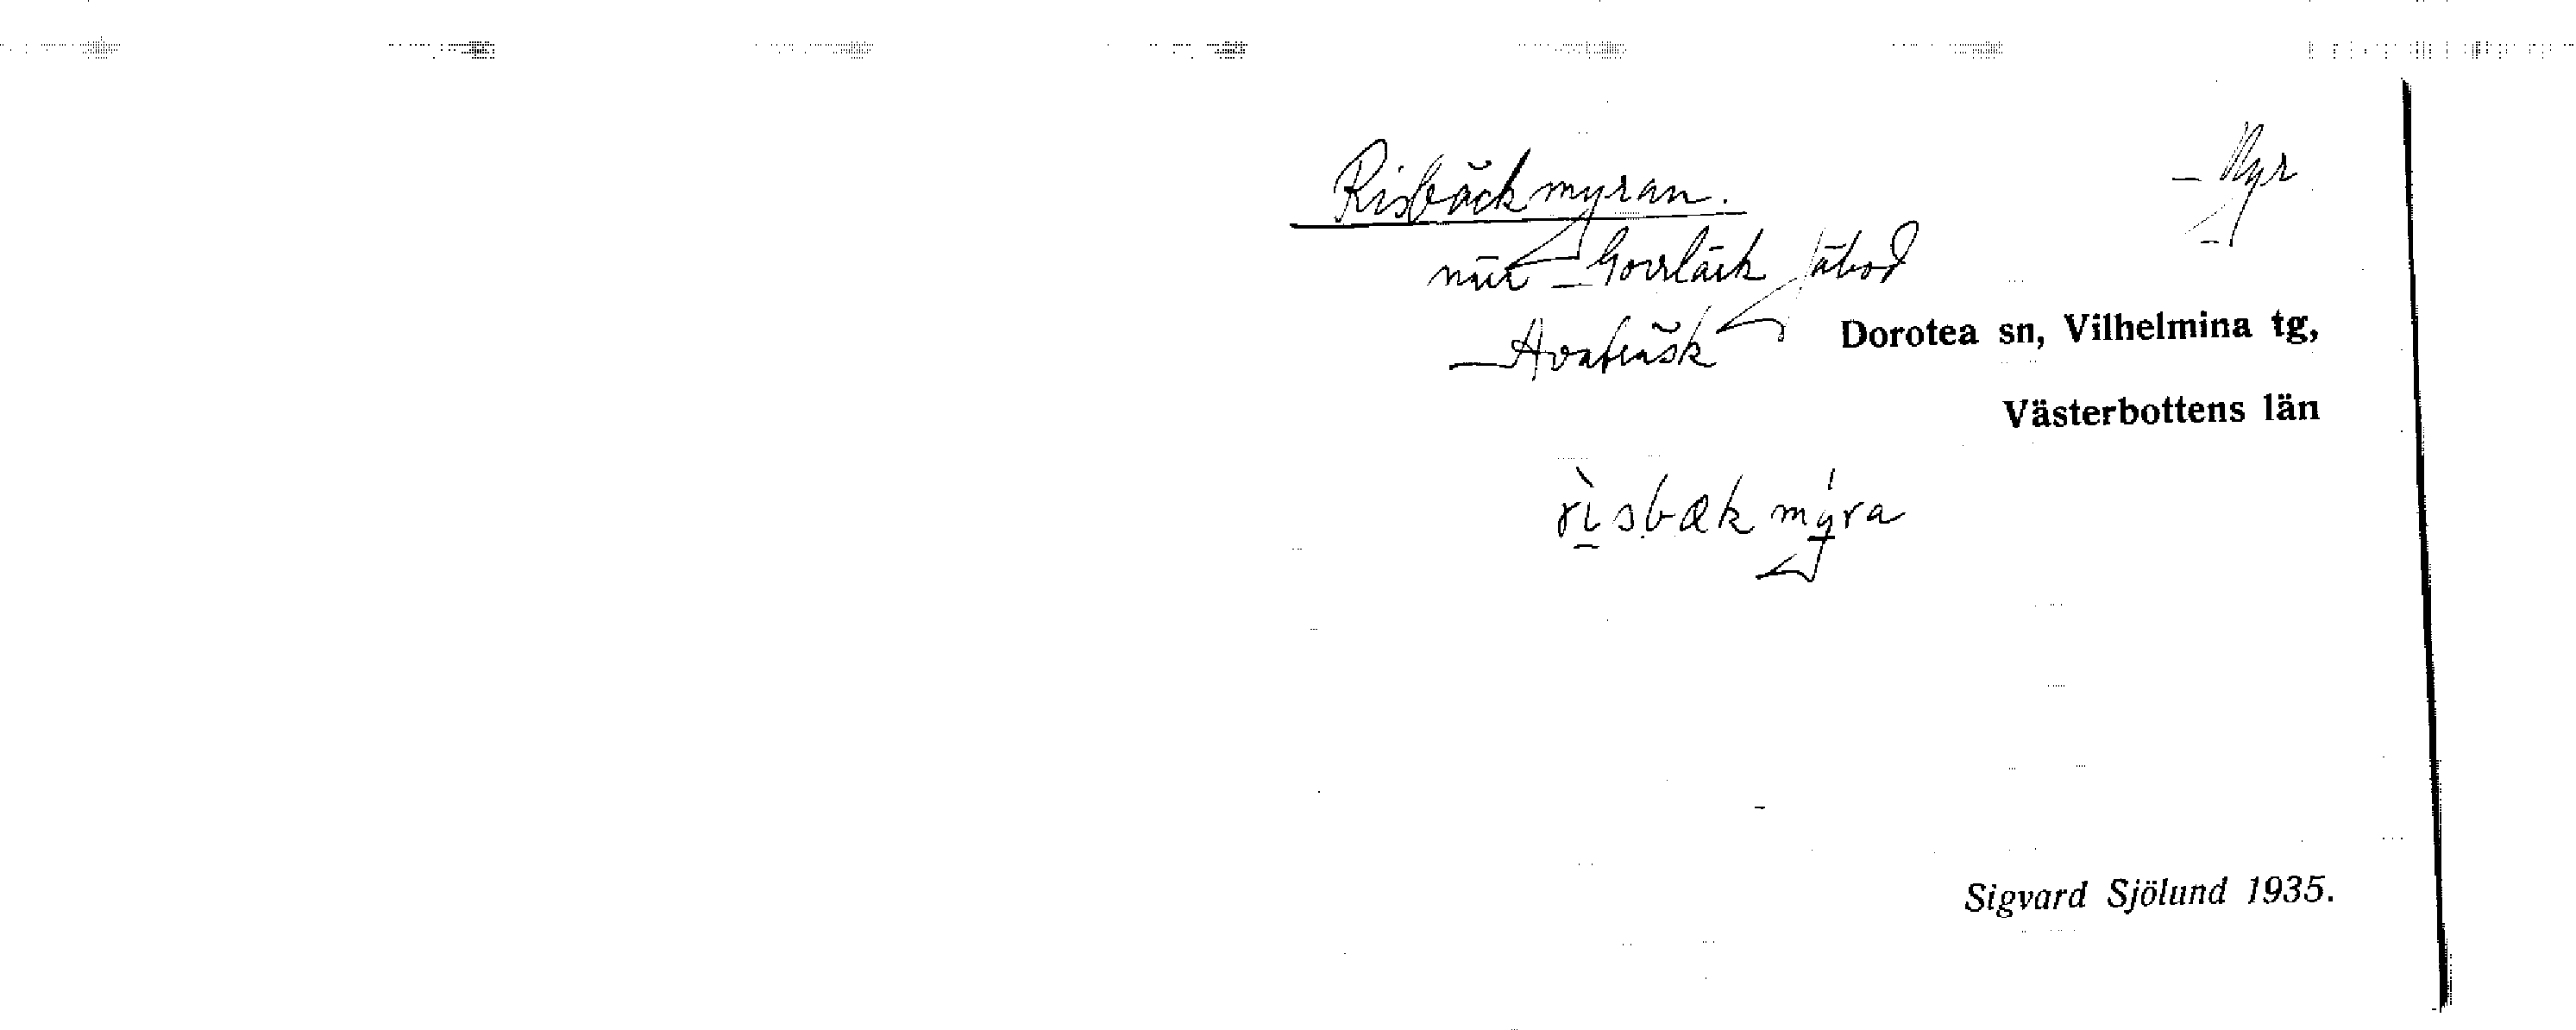 Risbäckmyran.
Myr
när Gorrbäck fäbod
Avaträsk
Dorotea sn, Vilhelmina tg,
Västerbottens län
rìsbækmýra
Sigvard Sjölund 1935.